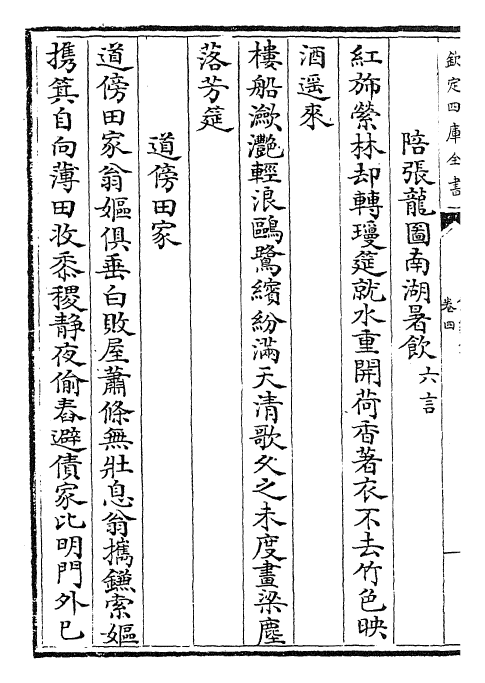 欽定四庫全書
卷四
陪張龍圖南湖暑飲六言
紅斾縈林却轉瓊筵就水重開荷香著衣不去竹色映
酒遥來
樓船瀲灔輕浪鷗鷺繽紛滿天清歌久之未度畫梁塵
落芳筵
道傍田家
道傍田家翁嫗俱垂白敗屋蕭條無壯息翁攜鎌索嫗
携箕自向薄田收黍稷靜夜偷舂避債家比明門外已